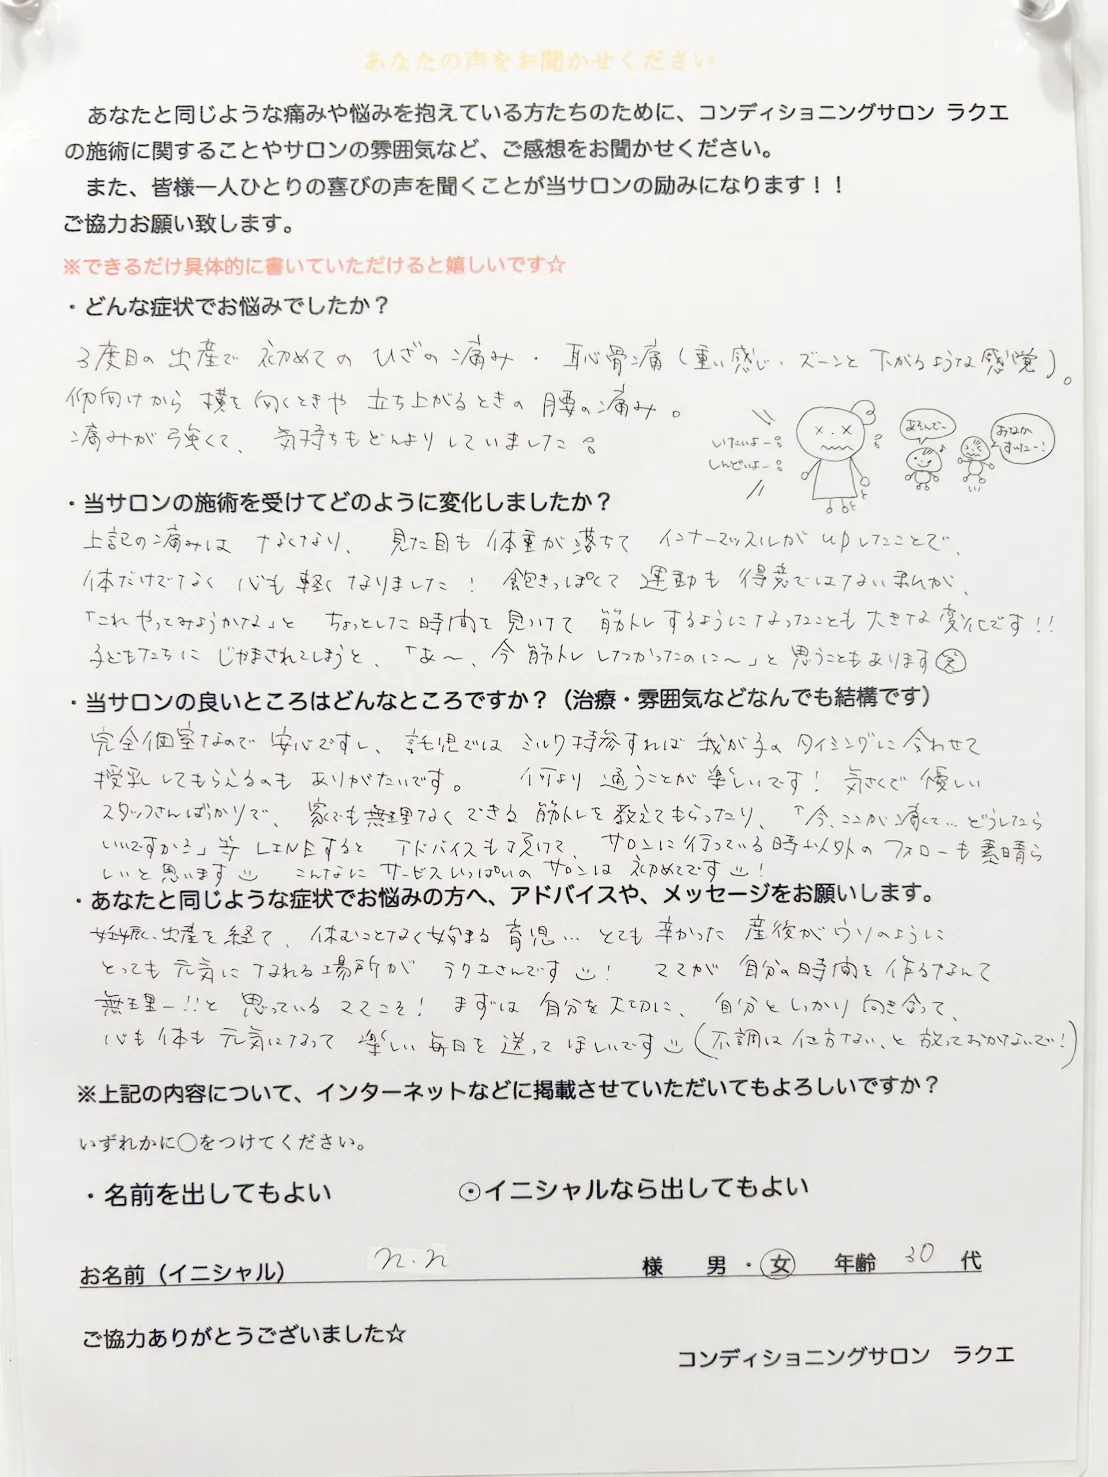 あなたの声をお聞かせください
あなたと同じような痛みや悩みを抱えている方たちのために、コンディショニングサロン ラクエ
の施術に関することやサロンの雰囲気など、ご感想をお聞かせください。
また、皆様一人ひとりの喜びの声を聞くことが当サロンの励みになります！！
ご協力お願い致します。
※できるだけ具体的に書いていただけると嬉しいです☆
・どんな症状でお悩みでしたか？
3度目の出産で初めてのひざの痛み・恥骨痛(重い感じ・ズーンと下がるような感覚)。
仰向けから横を向くときや立ち上がるときの腰の痛み。
痛みが強くて、気持ちもどんよりしていました。
いたいよー
しんどいよー
あそんでー
おなかすいたー!
・当サロンの施術を受けてどのように変化しましたか？
上記の痛みはなくなり、見た目も体重が落ちてインナーマッスルがupしたことで、
体だけでなく心も軽くなりました! 飽きっぽくて運動も得意ではない私が、
「これやってみようかな」とちょっとした時間を見つけて筋トレするようになったことも大きな変化です!!
子どもたちにじゃまされてしまうと、「あ〜、今筋トレしたかったのに〜」と思うこともあります笑
・当サロンの良いところはどんなところですか？（治療・雰囲気などなんでも結構です）
完全個室なので安心ですし、託児ではミルク持参すれば我が子のタイミングに合わせて
授乳してもらえるのもありがたいです。何より通うことが楽しいです! 気さくで優しい
スタッフさんばかりで、家でも無理なくできる筋トレを教えてもらったり、「今、ここが痛くて…どうしたら
いいですか?」等LINEするとアドバイスも頂けて、サロンに行っている時以外のフォローも素晴ら
しいと思います こんなにサービスいっぱいのサロンは初めてです!
・あなたと同じような症状でお悩みの方へ、アドバイスや、メッセージをお願いします。
妊娠、出産を経て、休むことなく始まる育児… とても辛かった産後がウソのように
とっても元気になれる場所がラクエさんです! ママが自分の時間を作るなんて
無理ー!!と思っているママこそ! まずは自分を大切に、自分としっかり向き合って、
心も体も元気になって楽しい毎日を送ってほしいです(不調は仕方ない、と放っておかないで!)
※上記の内容について、インターネットなどに掲載させていただいてもよろしいですか？
いずれかに〇をつけてください。
・名前を出してもよい ・イニシャルなら出してもよい
お名前（イニシャル） n.n 様 男・女 年齢 30 代
ご協力ありがとうございました☆
コンディショニングサロン ラクエ